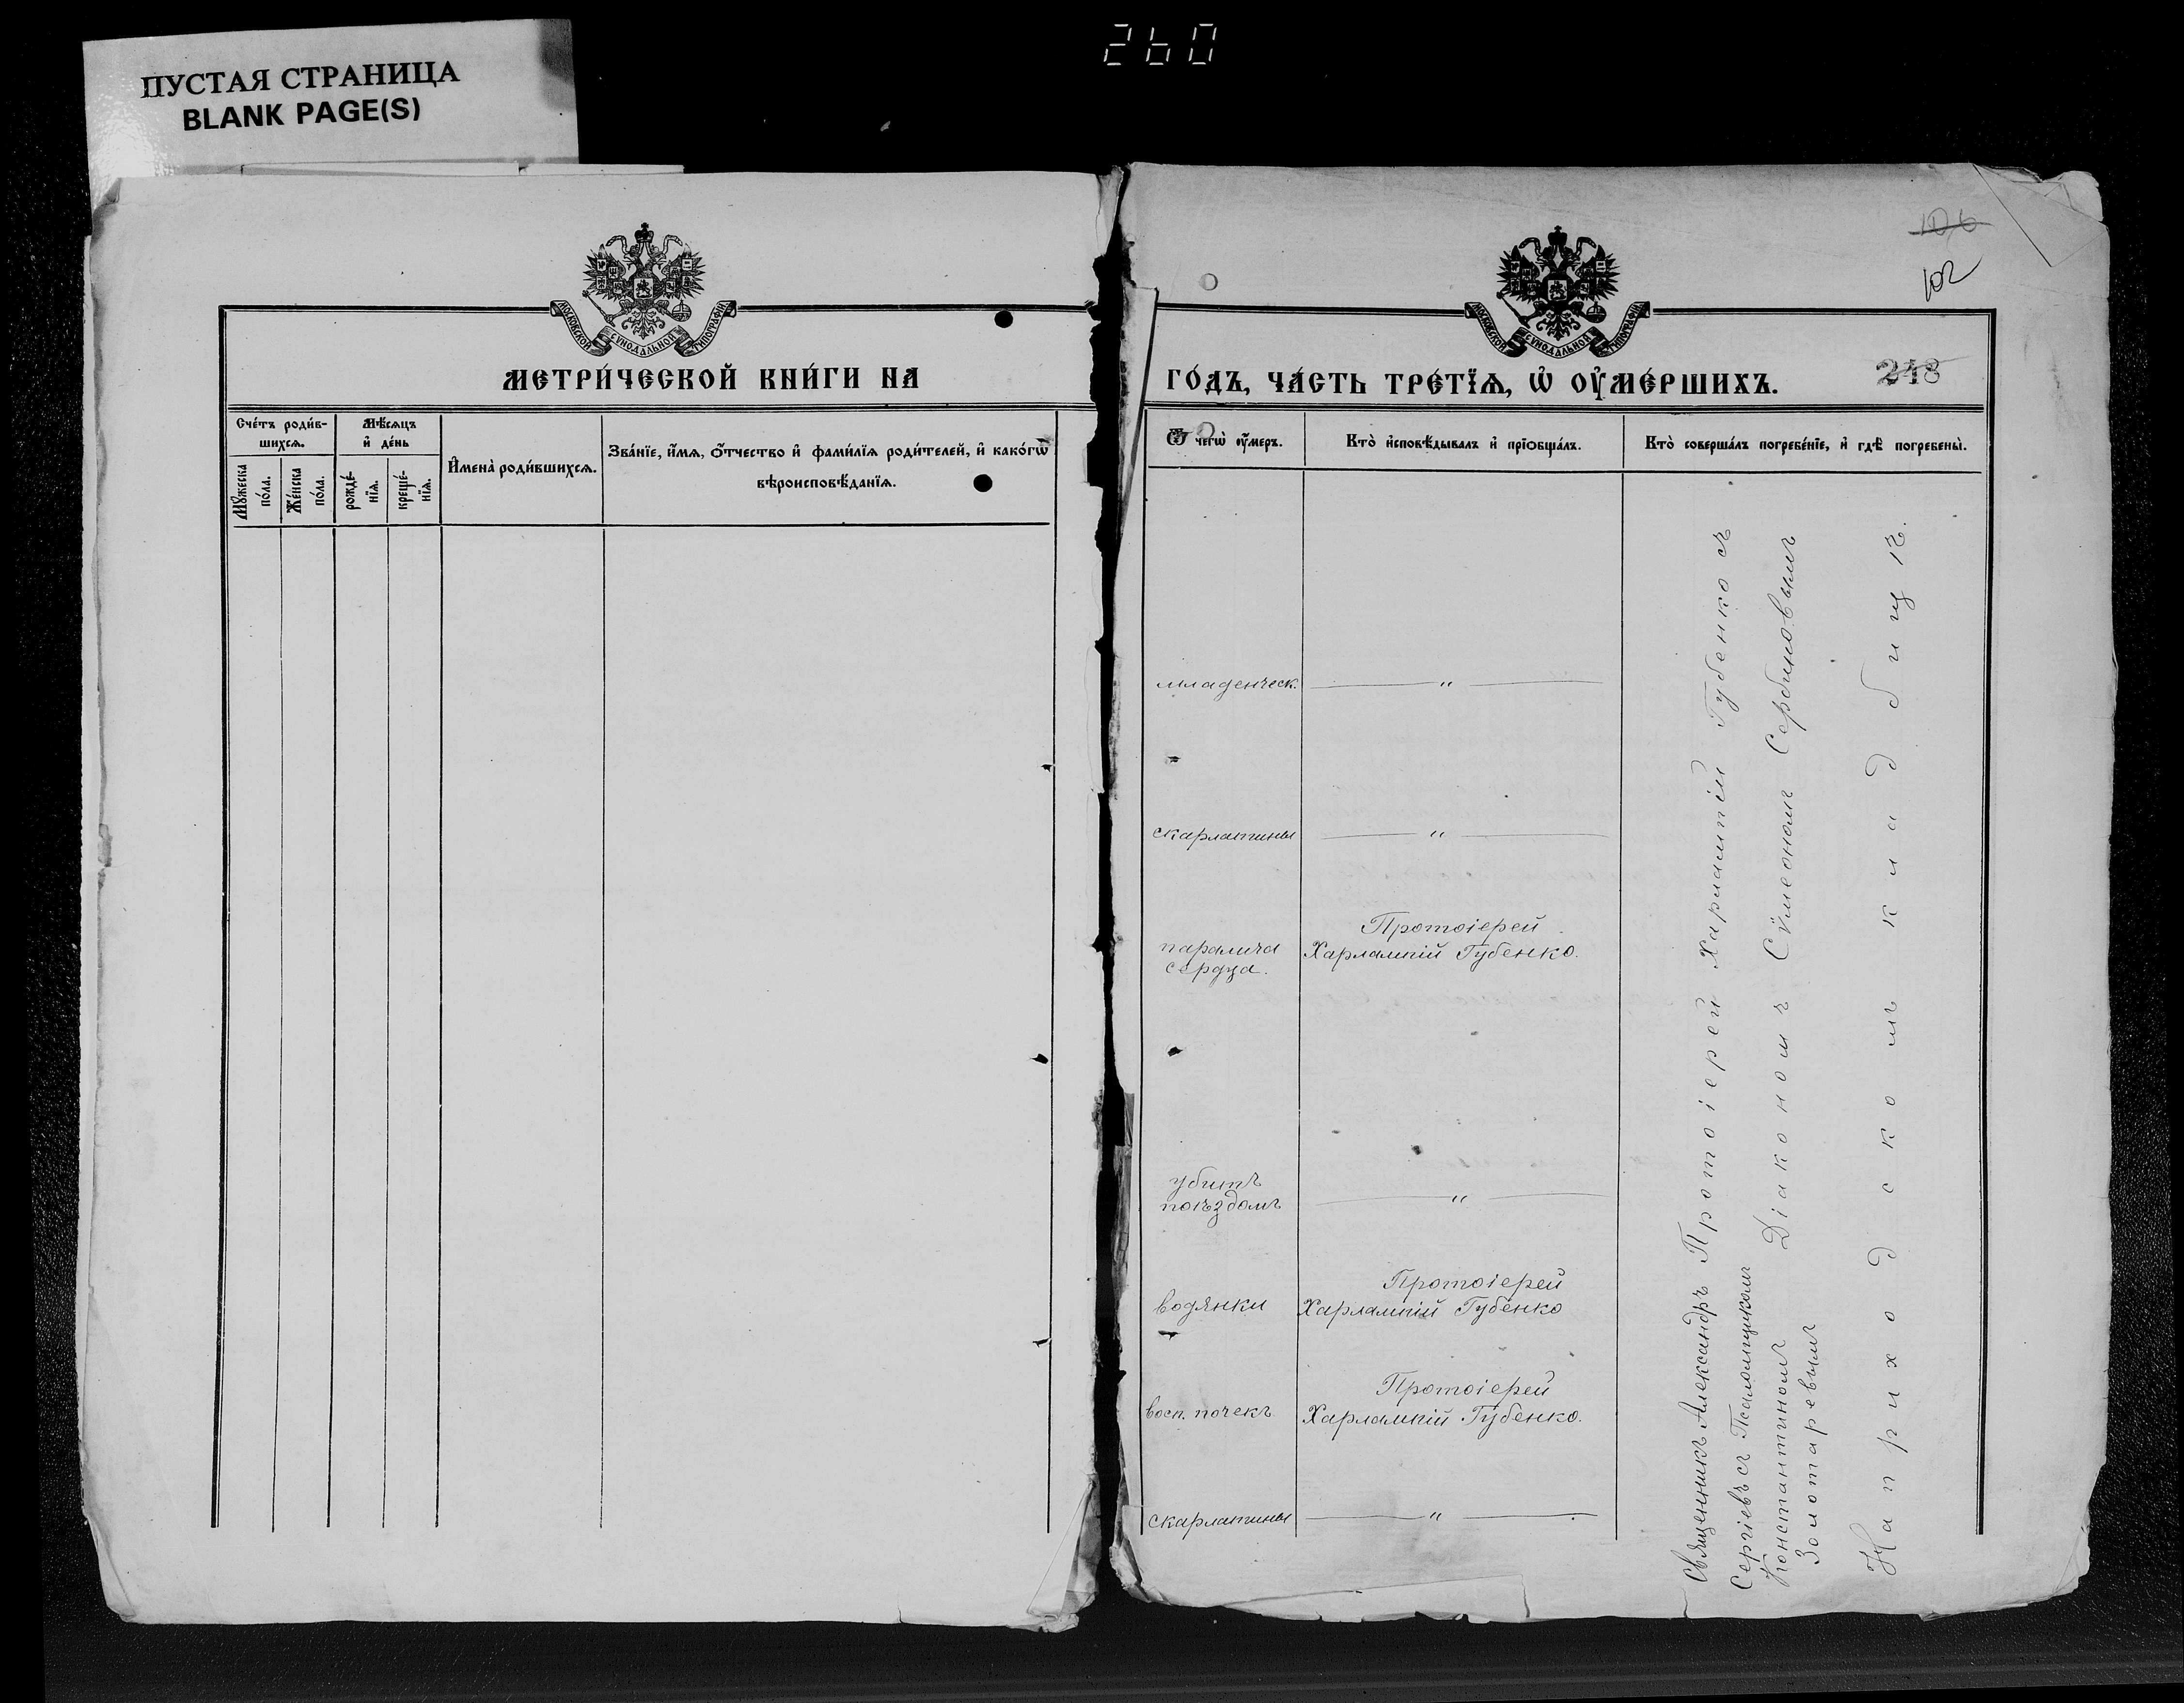 260
ПУСТАЯ СТРАНИЦА
BLANK PAGE(S)
МОСКОВСКОЙ СУНОДАЛЬНОЙ ТИПОГРАФІИ
МЕТРИ́ЧЕСКОЙ КНИ́ГИ НА
Сче́тъ роди́в-
шихсѧ.
Мѣ́сѧцъ
и҆ де́нь
Мꙋ́жеска
по́ла.
Же́нска
по́ла.
рожде́-
нїѧ.
креще́-
нїѧ.
И҆мена̀ роди́вшихсѧ.
Зва́нїе, и҆́мѧ, ѻ҆́тчество и҆ фами́лїѧ роди́телей, и҆ како́гѡ
вѣроисповѣ́данїѧ.
106
102
МОСКОВСКОЙ СУНОДАЛЬНОЙ ТИПОГРАФІИ
ГО́ДЪ, ЧА́СТЬ ТРЕ́ТЇѦ, Ѡ҆ ОУ҆МЕ́РШИХЪ.
248
Ѿ чегѡ̀ ᲂу҆́меръ.
Кто̀ и҆сповѣ́дывалъ и҆ прїѻбща́лъ.
Кто̀ соверша́лъ погребе́нїе, и҆ гдѣ̀ погребены̀.
младенческ. — " —
скарлатины — " —
паралича
сердца.
Протоіерей
Харлампій Губенко.
убитъ
поѣздомъ — " —
водянки
Протоіерей
Харлампій Губенко
восп. почекъ
Протоіерей
Харлампій Губенко.
скарлатины — " —
Священникъ Александръ Протоіерей Харлампій Губенко съ
Сергіевъ съ Псаломщикомъ
Константиномъ Діакономъ Сѵмеономъ Сербиновымъ
Золотаревымъ
На приходскомъ кладбищѣ.